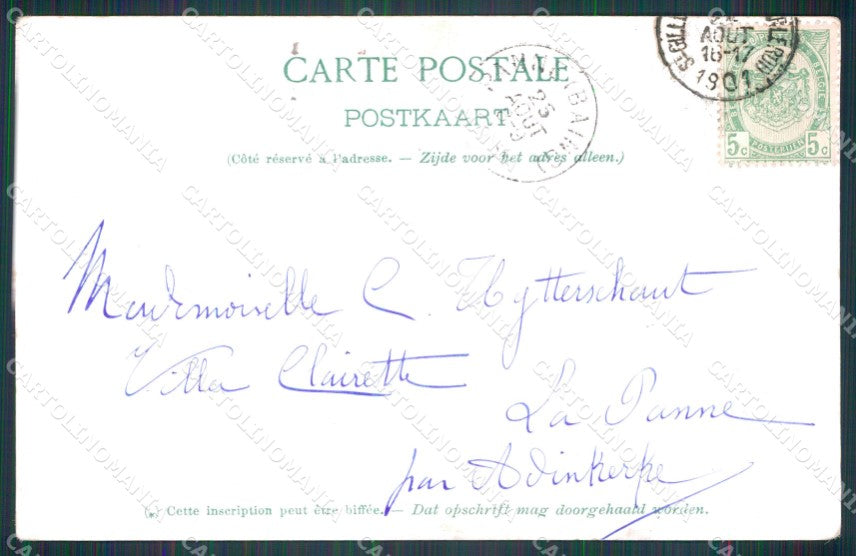 CARTE POSTALE
POSTKAART
(Côté réservé à l'adresse. — Zijde voor het adres alleen.)
AOUT
16-17
1901
25
AOUT
5c POSTERIJEN 5c
Mademoiselle C. Uytterschaut
Villa Clairette
La Panne
par Adinkerke
(.) Cette inscription peut être biffée. — Dat opschrift mag doorgehaald worden.
CARTOLINOMANIA